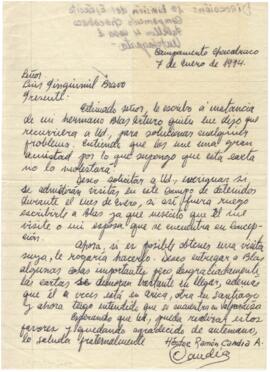 Campamento Chacabuco
7 de Enero de 1974.
Señor
Luis
Bravo
Presente
Estimado señor, le escribo a instancia
de mi hermano Blas Arturo quien me dijo que
recurriera a Ud, para solucionar cualquier
problema. Entiendo que los une una gran
amistad por lo que supongo que esta carta
no lo molestará.
Deseo solicitar a Ud, averiguar si
se admitirán visitas en este campo de detenidos
durante el mes de enero, si así fuera ruego
escribirle a Blas ya que necesito que él me
visite o mi esposa que se encuentra en Concep-
ción.
Ahora, si es posible obtener una visita
suya, le rogaría hacerlo. Deseo entregar a Blas
algunas cosas importantes pero desgraciadamente
las cartas se demoran bastante en llegar, además
que él a veces está en Arica, otra en Santiago
y ahora tengo entendido que se encuentra en Valparaíso.
Esperando que Ud, pueda realizar estos
favores y quedando agradecido de antemano,
lo saluda fraternalmente
Héctor Ramón Candia A.
Candia